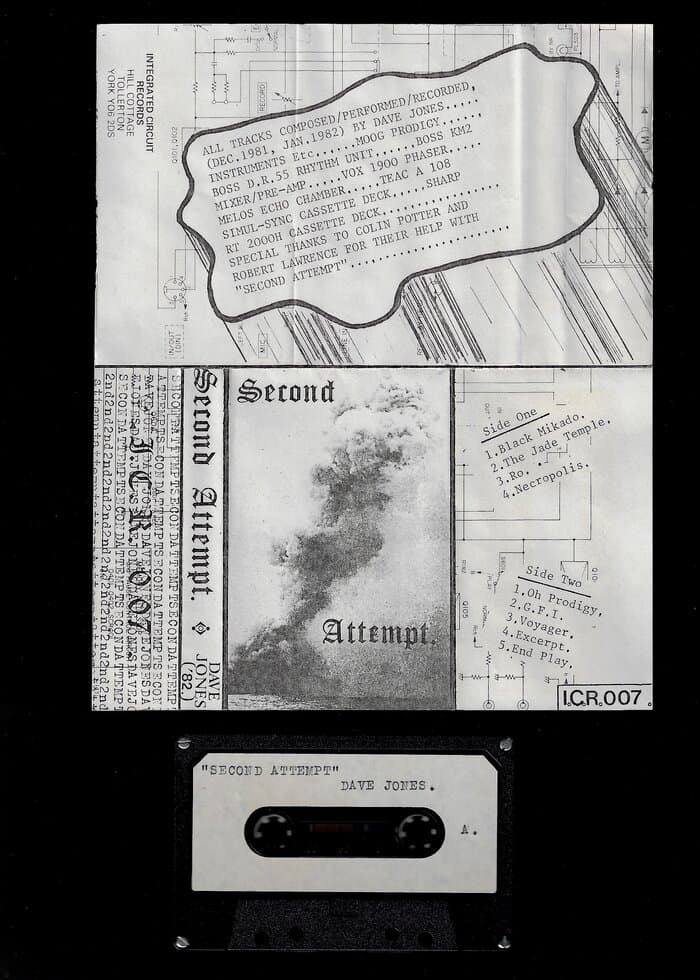 INTEGRATED CIRCUIT
RECORDS
HILL COTTAGE
TOLLERTON
YORK YO6 2DS
RECORD
ALL TRACKS COMPOSED/PERFORMED/RECORDED,
(DEC.1981, JAN.1982) BY DAVE JONES.....
INSTRUMENTS Etc......MOOG PRODIGY......
BOSS D.R.55 RHYTHM UNIT......BOSS KM2
MIXER/PRE-AMP.....VOX 1900 PHASER.....
MELOS ECHO CHAMBER.....TEAC A 108
SIMUL-SYNC CASSETTE DECK.....SHARP
RT 2000H CASSETTE DECK.................
SPECIAL THANKS TO COLIN POTTER AND
ROBERT LAWRENCE FOR THEIR HELP WITH
"SECOND ATTEMPT"........................
IN/OUT
(DIN)
MIC
SECONDATTEMPTSECONDATTEMPTSECONDATTEMPT
DAVEJONESDAVEJONESDAVEJONESDAV
2nd2nd2nd2nd2nd2nd2nd2nd2nd2nd2nd
ICR 007
Second Attempt.
DAVE
JONES
('82)
Second
Attempt.
Side One
1.Black Mikado.
2.The Jade Temple.
3.Ro.
4.Necropolis.
Side Two
1.Oh Prodigy,
2.G.F.I.
3.Voyager.
4.Excerpt.
5.End Play.
I.C.R.007.
"SECOND ATTEMPT"
DAVE JONES.
A.